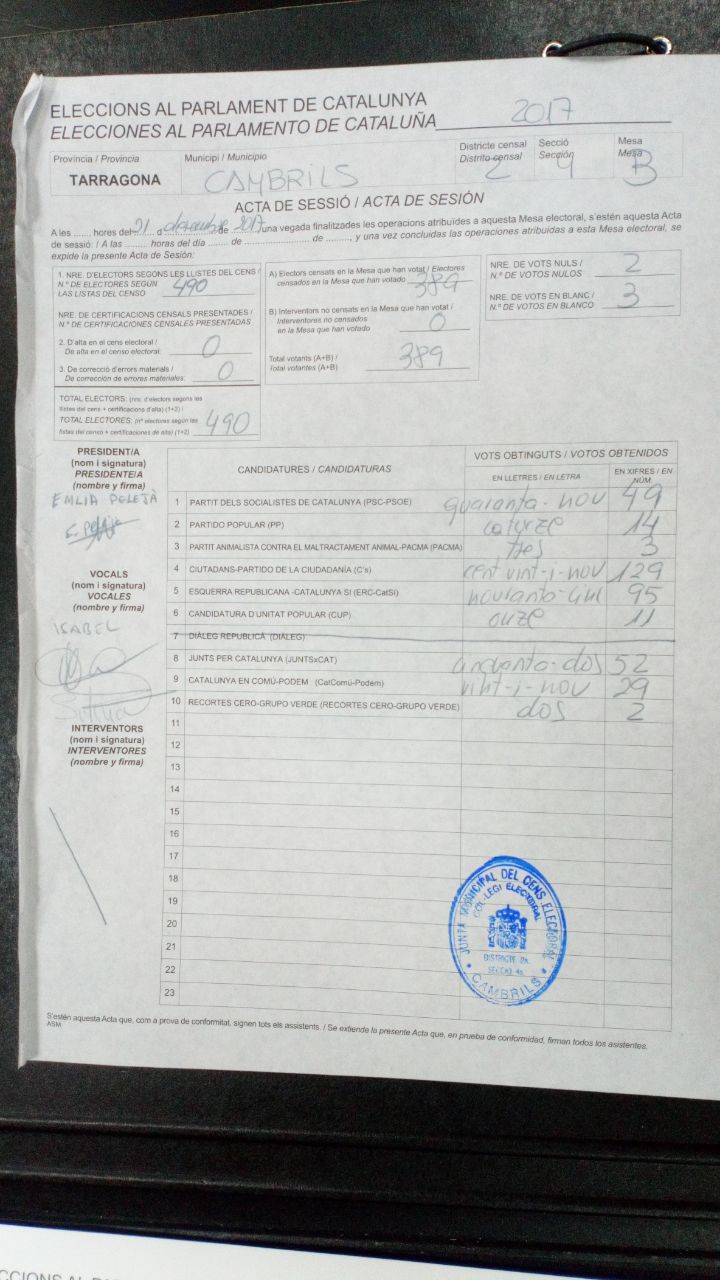 ELECCIONS AL PARLAMENT DE CATALUNYA
ELECCIONES AL PARLAMENTO DE CATALUÑA 2017
Provincia / Provincia
TARRAGONA
Municipi / Municipio
CAMBRILS
Districte censal
Distrito censal
2
Secció
Sección
4
Mesa
Mesa
B
ACTA DE SESSIÓ / ACTA DE SESIÓN
A les ........ hores del 21 d desembre de 2017 una vegada finalitzades les operacions atribuïdes a aquesta Mesa electoral, s'estén aquesta Acta
de sessió: / A las ......... horas del día ....... de ...................... de ........, y una vez concluidas las operaciones atribuidas a esta Mesa electoral, se
expide la presente Acta de Sesión:
1. NRE. D'ELECTORS SEGONS LES LLISTES DEL CENS /
N.º DE ELECTORES SEGÚN
LAS LISTAS DEL CENSO 490
NRE. DE CERTIFICACIONS CENSALS PRESENTADES /
N.º DE CERTIFICACIONES CENSALES PRESENTADAS
2. D'alta en el cens electoral /
De alta en el censo electoral: 0
3. De correcció d'errors materials /
De corrección de errores materiales: 0
TOTAL ELECTORS: (nre. d'electors segons les
llistes del cens + certificacions d'alta) (1+2) /
TOTAL ELECTORES: (nº electores según las
listas del censo + certificaciones de alta) (1+2) 490
A) Electors censats en la Mesa que han votat / Electores
censados en la Mesa que han votado 389
B) Interventors no censats en la Mesa que han votat /
Interventores no censados
en la Mesa que han votado 0
Total votants (A+B) /
Total votantes (A+B) 389
NRE. DE VOTS NULS /
N.º DE VOTOS NULOS 2
NRE. DE VOTS EN BLANC /
N.º DE VOTOS EN BLANCO 3
PRESIDENT/A
(nom i signatura)
PRESIDENTE/A
(nombre y firma)
EMLIA PELEJÀ
VOCALS
(nom i signatura)
VOCALES
(nombre y firma)
ISABEL
INTERVENTORS
(nom i signatura)
INTERVENTORES
(nombre y firma)
CANDIDATURES / CANDIDATURAS
VOTS OBTINGUTS / VOTOS OBTENIDOS
EN LLETRES / EN LETRA
EN XIFRES / EN NÚM.
1 PARTIT DELS SOCIALISTES DE CATALUNYA (PSC-PSOE) quaranta-nou 49
2 PARTIDO POPULAR (PP) catorze 14
3 PARTIT ANIMALISTA CONTRA EL MALTRACTAMENT ANIMAL-PACMA (PACMA) tres 3
4 CIUTADANS-PARTIDO DE LA CIUDADANÍA (C's) cent vint-i-nou 129
5 ESQUERRA REPUBLICANA -CATALUNYA SI (ERC-CatSí) nouranta-cinc 95
6 CANDIDATURA D'UNITAT POPULAR (CUP) onze 11
7 DIÀLEG REPUBLICÀ (DIÀLEG)
8 JUNTS PER CATALUNYA (JUNTSxCAT) cinquanta-dos 52
9 CATALUNYA EN COMÚ-PODEM (CatComú-Podem) vint-i-nou 29
10 RECORTES CERO-GRUPO VERDE (RECORTES CERO-GRUPO VERDE) dos 2
11
12
13
14
15
16
17
18
19
20
21
22
23
JUNTA MUNICIPAL DEL CENS ELECTORAL
COL·LEGI ELECTORAL
DISTRICTE 2n.
SECCIÓ 4a.
CAMBRILS
S'estén aquesta Acta que, com a prova de conformitat, signen tots els assistents. / Se extiende la presente Acta que, en prueba de conformidad, firman todos los asistentes.
ASM